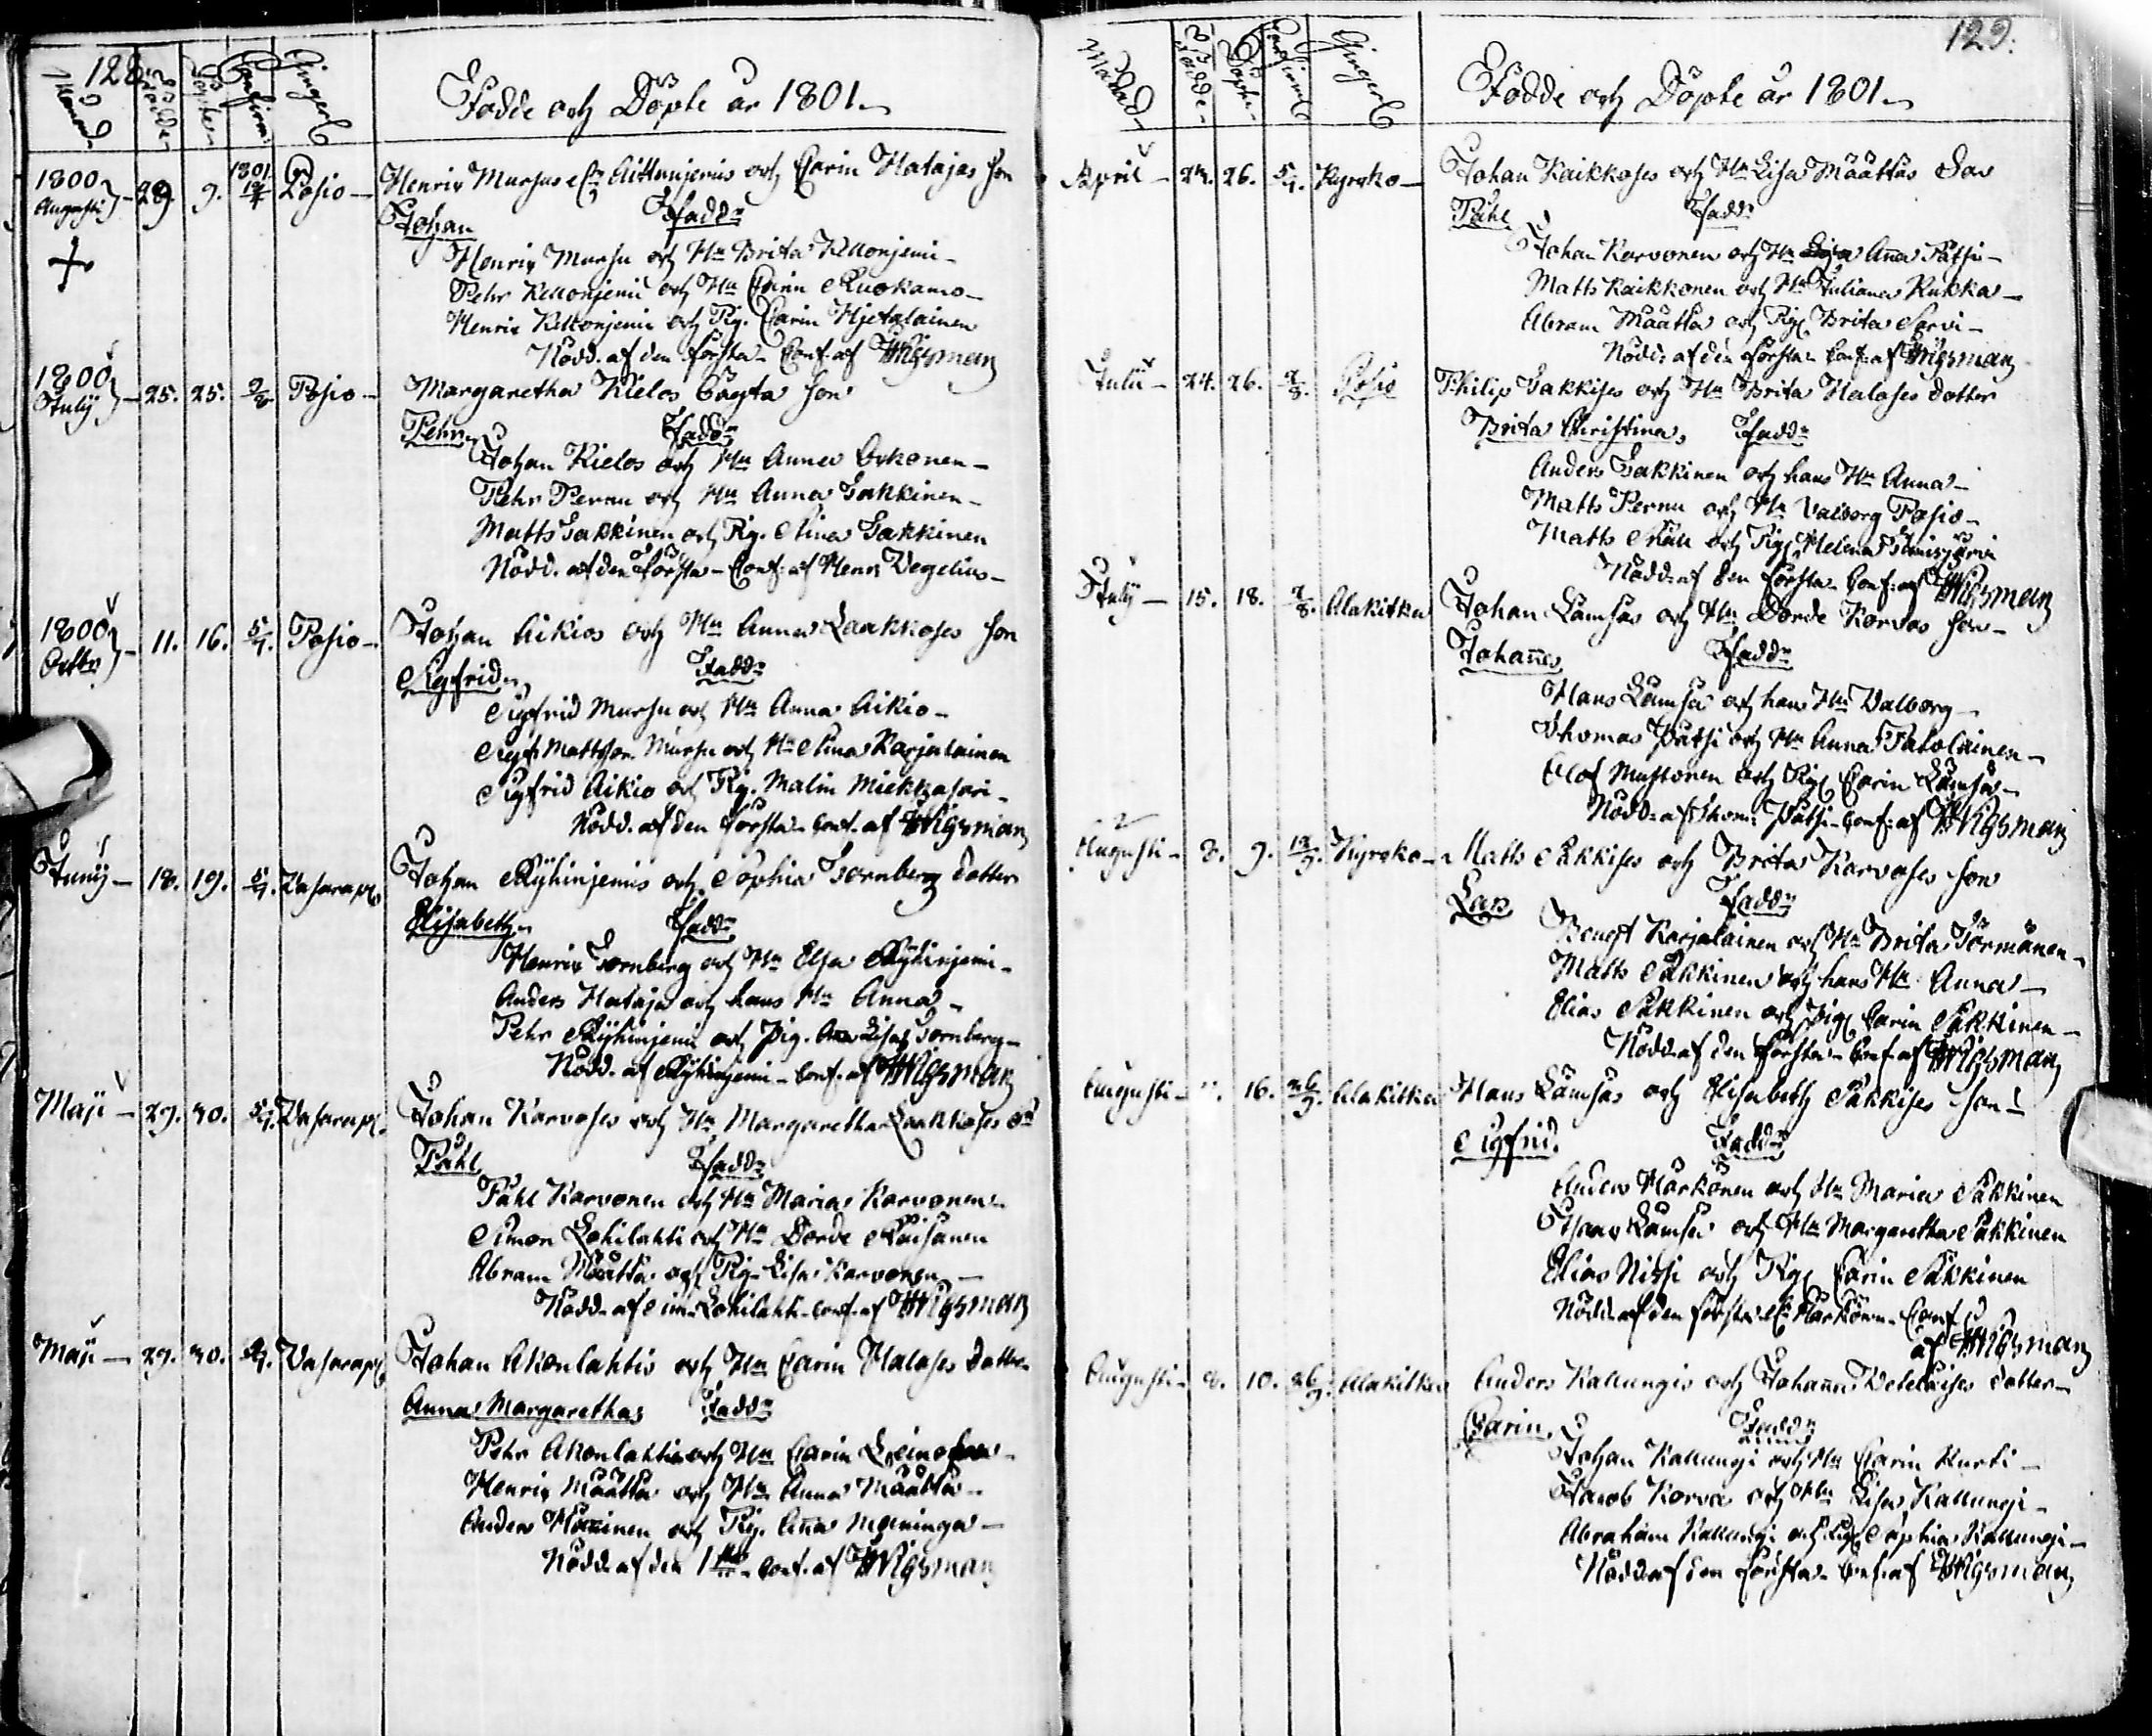 128.
Månad Födde Döpte Confirm. Gingerd
Födde och Döpte år 1801.
1800 Augusti 29. 9. 1801 Posio Henrix Mursus och Carin Hatajas son
Johan Fadd:r
Henrix Mursu och H:u Brita Kellonjemi
Pehr Kellonjemi och H:u Carin Ruokamo
Henrix Kellonjemi och Pig. Carin Hjetalainen
Nödd. af den första. Conf. af HWigsman
1800 July 25. 25. 2/8 Posio Margaretha Kielos Oägta son
Pehr Fadd:r
Johan Kielos och H:u Anna
Pehr Pernu och H:u Anna Lakkinen
Matts Lakkinen och Pig. Stina Lakkinen
Nödd. af den första Conf: af Henr Wegelius
1800 Octbr 11. 16. 5/7. Posio Johan Aikios och H:u Anna Laakkoses son
Sigfrid Fadd:r
Sigfrid Mursu och H:u Anna Aikio
Sigfr. Mattsson Mursu och H:u Stina Karjalainen
Sigfrid Aikio och Pig. Malin
Nödd. af den första. Conf. af HWigsman
Juny 18. 19. 5/7. Wasarap. Johan Rÿhinjemis och Sophia Tornberg dotter
Elisabeth Fadd:r
Henrix Tornberg och H:u Elsa Rÿhinjemi
Anders Hataja och hans H:u Anna
Pehr Rÿhinjemi och Pig. Anna Lisa Tornberg
Nödd. af Rÿhinjemi Conf. af HWigsman
Maji 29. 30. 5/7. Wasarap. Johan Karvoses och H:u Margaretha Laakkoses son
Påhl Fadd:r
Påhl Karvonen och H:u Maria Karvonen
Simon Lohilahti och H:u Dorde Räisänen
Abram Määttä och Pig. Lisa Karvonen
Nödd. af Sim. Lohilahti Conf. af HWigsman
Maji 29. 30. 5/7. Wasarap. Johan Ahonlahtis och H:u Carin Haloses dotter
Anna Margaretha Fadd:r
Pehr Ahonlahti och H:u Carin
Henrix Määttä och H:u Anna Määttä
Anders och Pig. Anna Moininga
Nödd. af den 1sta. Conf. af HWigsman
129.
Månad Födde Döpte Confirmd Gingerd
Födde och Döpte år 1801.
April 24. 26. 5/7. Kyrcko Johan Kaikkoses och H:u Lisa Määttäs son
Påhl Fadd:r
Johan Karvonen och H:u Anna Pätsi
Matts Kaikkonen och H:u Juliana Kukka
Abram Määtta och Pig. Brita Sarvi
Nödd. af den första. Conf. af HWigsman
Julii 24. 26. 2/8. Posio Philip Lakkises och H:u Brita Haloses dotter
Brita Christina. Fadd:r
Anders Lakkinen och hans H:u Anna
Matts Pernu och H:u Valborg Posio
Matts och Pig. Helena
Nödd. af den första. Conf: af HWigsman
July 15. 18. 2/8. Alakitka Johan Lämsäs och H:u Dorde Korvas son
Johannes Fadd:r
Hans Lämsä och hans H:u Valborg
Thomas Pätsi och H:u Anna Patolainen
Olof Mustonen och Pig. Carin Lämsä
Nödd. af Thom: Pätsi Conf: af HWigsman
Augusti 8. 9. 13/9. Kyrcko Matts Säkkises och Brita Karvoses son
Lars Fadd:r
Bengt Karjalainen och H:u Brita Törmänen
Matts Säkkinen och hans H:u Anna
Elias Säkkinen och Pig. Carin Säkkinen
Nödd. af den första. Conf. af HWigsman
Augusti 16. 26/9. Alakitka Hans Lämsäs och Elisabeth Säkkises son
Sigfrid. Fadd:r
Anders Harkönen och H:u Maria Säkkinen
Lämsä och H:u Margaretha Säkkinen
Elias Nissi och Pig. Carin Säkkinen
Nödd. af den första Harkönen. Conf.
af HWigsman
Augusti 8. 10. 26/9. Alakitka Anders Kallungis och Johanna dotter
Carin. Fadd:r
Johan Kallungi och H:u Carin Kurti
Jacob Korva och H:u Lisa Kallungi
Abraham Kallungi och Pig. Sophia Kallungi
Nödd. af den första. Conf. af HWigsman